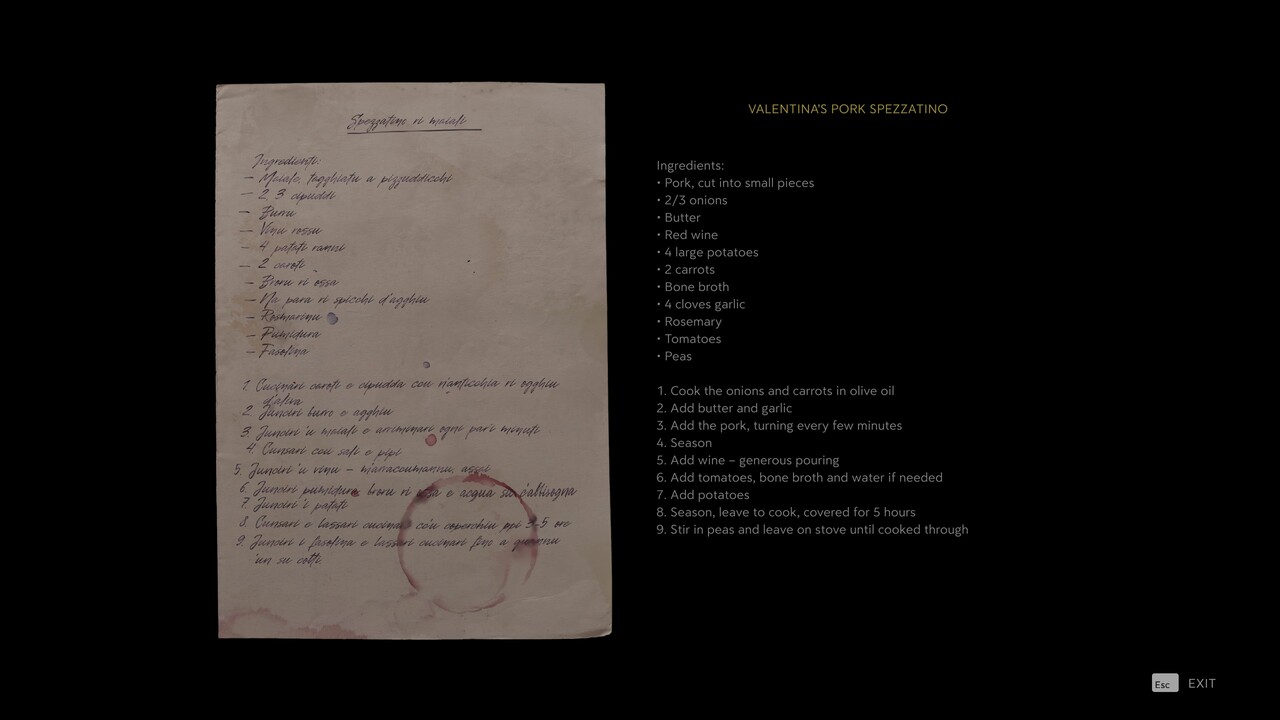 Spezzatino ri maiali
Ingredienti:
– Maiale, tagghiatu a pizzuddicchi
– 2, 3 cipuddi
– Burru
– Vinu rossu
– 4 patati ranni
– 2 caroti
– Broru ri ossa
– Na para ri spicchi d'agghiu
– Rosmarinu
– Pumidura
– Fasolina
1. Cucinari caroti e cipudda cou n'anticchia ri ogghiu
d'aliva
2. Junciri burro e agghiu
3. Junciri 'u maiali e arriminari ogni pari minuti
4. Cunsari cou sali e pipi
5. Junciri 'u vinu – marraccumannu, assai
6. Junciri pumidura broru ri ossa e acqua su c'abbisogna
7. Junciri i patati
8. Cunsari e lassari cucinari cou coperchiu pi 3-5 ore
9. Junciri i fasolina e lassari cucinari fino a quannu
'un su cotti.
VALENTINA'S PORK SPEZZATINO
Ingredients:
• Pork, cut into small pieces
• 2/3 onions
• Butter
• Red wine
• 4 large potatoes
• 2 carrots
• Bone broth
• 4 cloves garlic
• Rosemary
• Tomatoes
• Peas
1. Cook the onions and carrots in olive oil
2. Add butter and garlic
3. Add the pork, turning every few minutes
4. Season
5. Add wine – generous pouring
6. Add tomatoes, bone broth and water if needed
7. Add potatoes
8. Season, leave to cook, covered for 5 hours
9. Stir in peas and leave on stove until cooked through
Esc EXIT